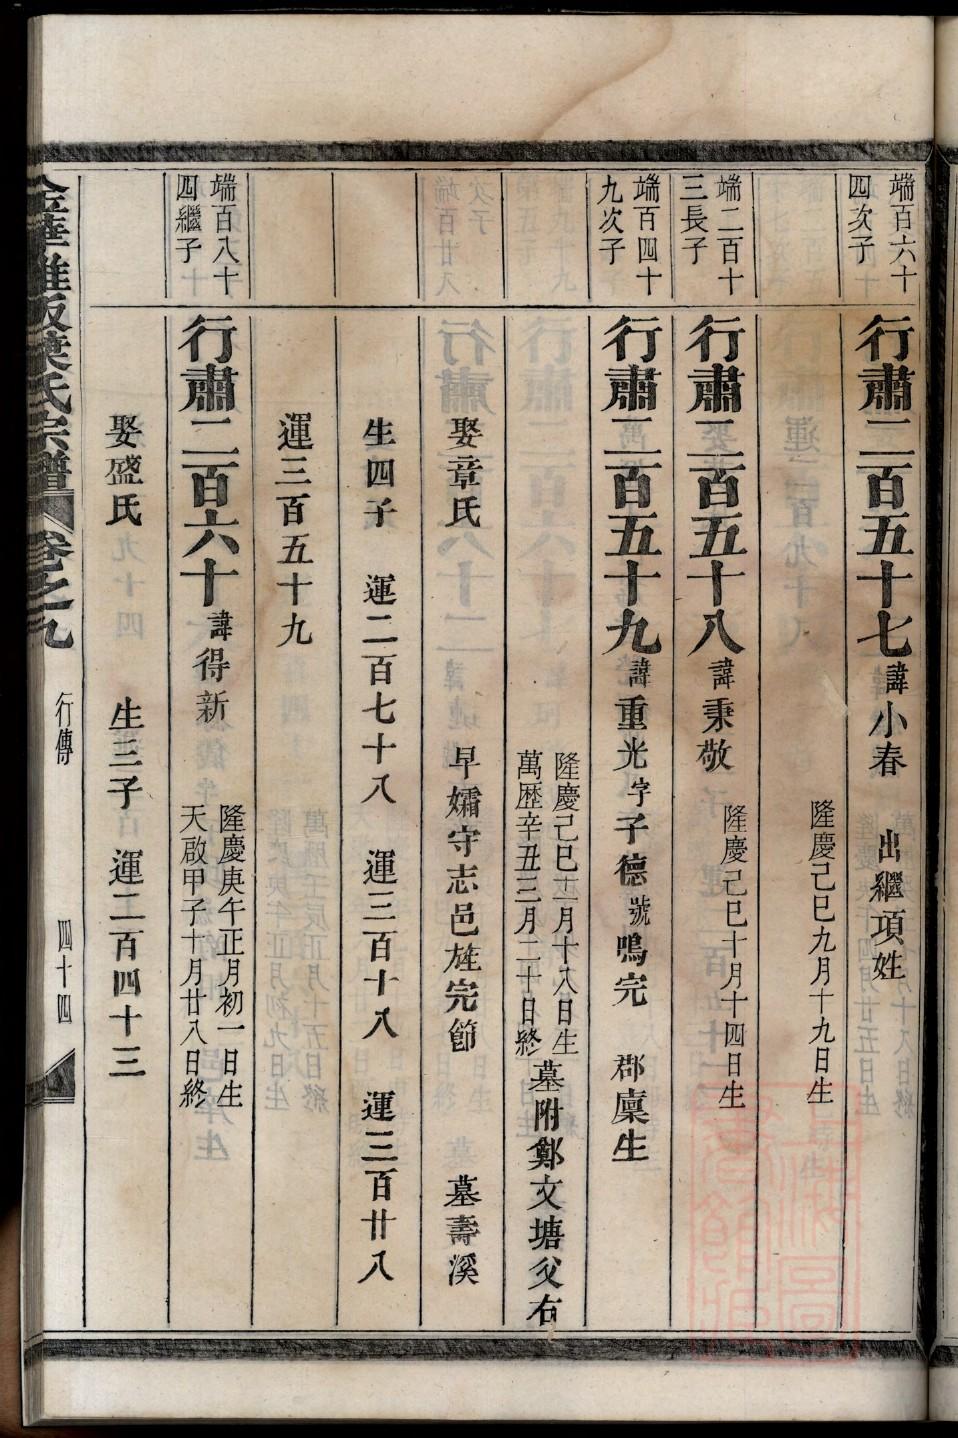 端百六十
四次子
行肅二百五十七諱小春 出繼項姓
隆慶己巳九月十九日生
端二百十
三長子
行肅二百五十八諱秉敬
隆慶己巳十月十四日生
端百四十
九次子
行肅二百五十九諱重光字子德號鳴完 郡廩生
隆慶己巳十一月十八日生
萬歷辛丑三月二十日終
墓附鄭文塘父右
娶章氏 早孀守志邑旌完節 墓壽溪
生四子 運二百七十八 運三百十八 運三百廿八
運三百五十九
端百八十
四繼子
行肅二百六十諱得新
隆慶庚午正月初一日生
天啟甲子十月廿八日終
娶盛氏 生三子 運二百四十三
葉氏宗譜 卷之九 行傳 四十四